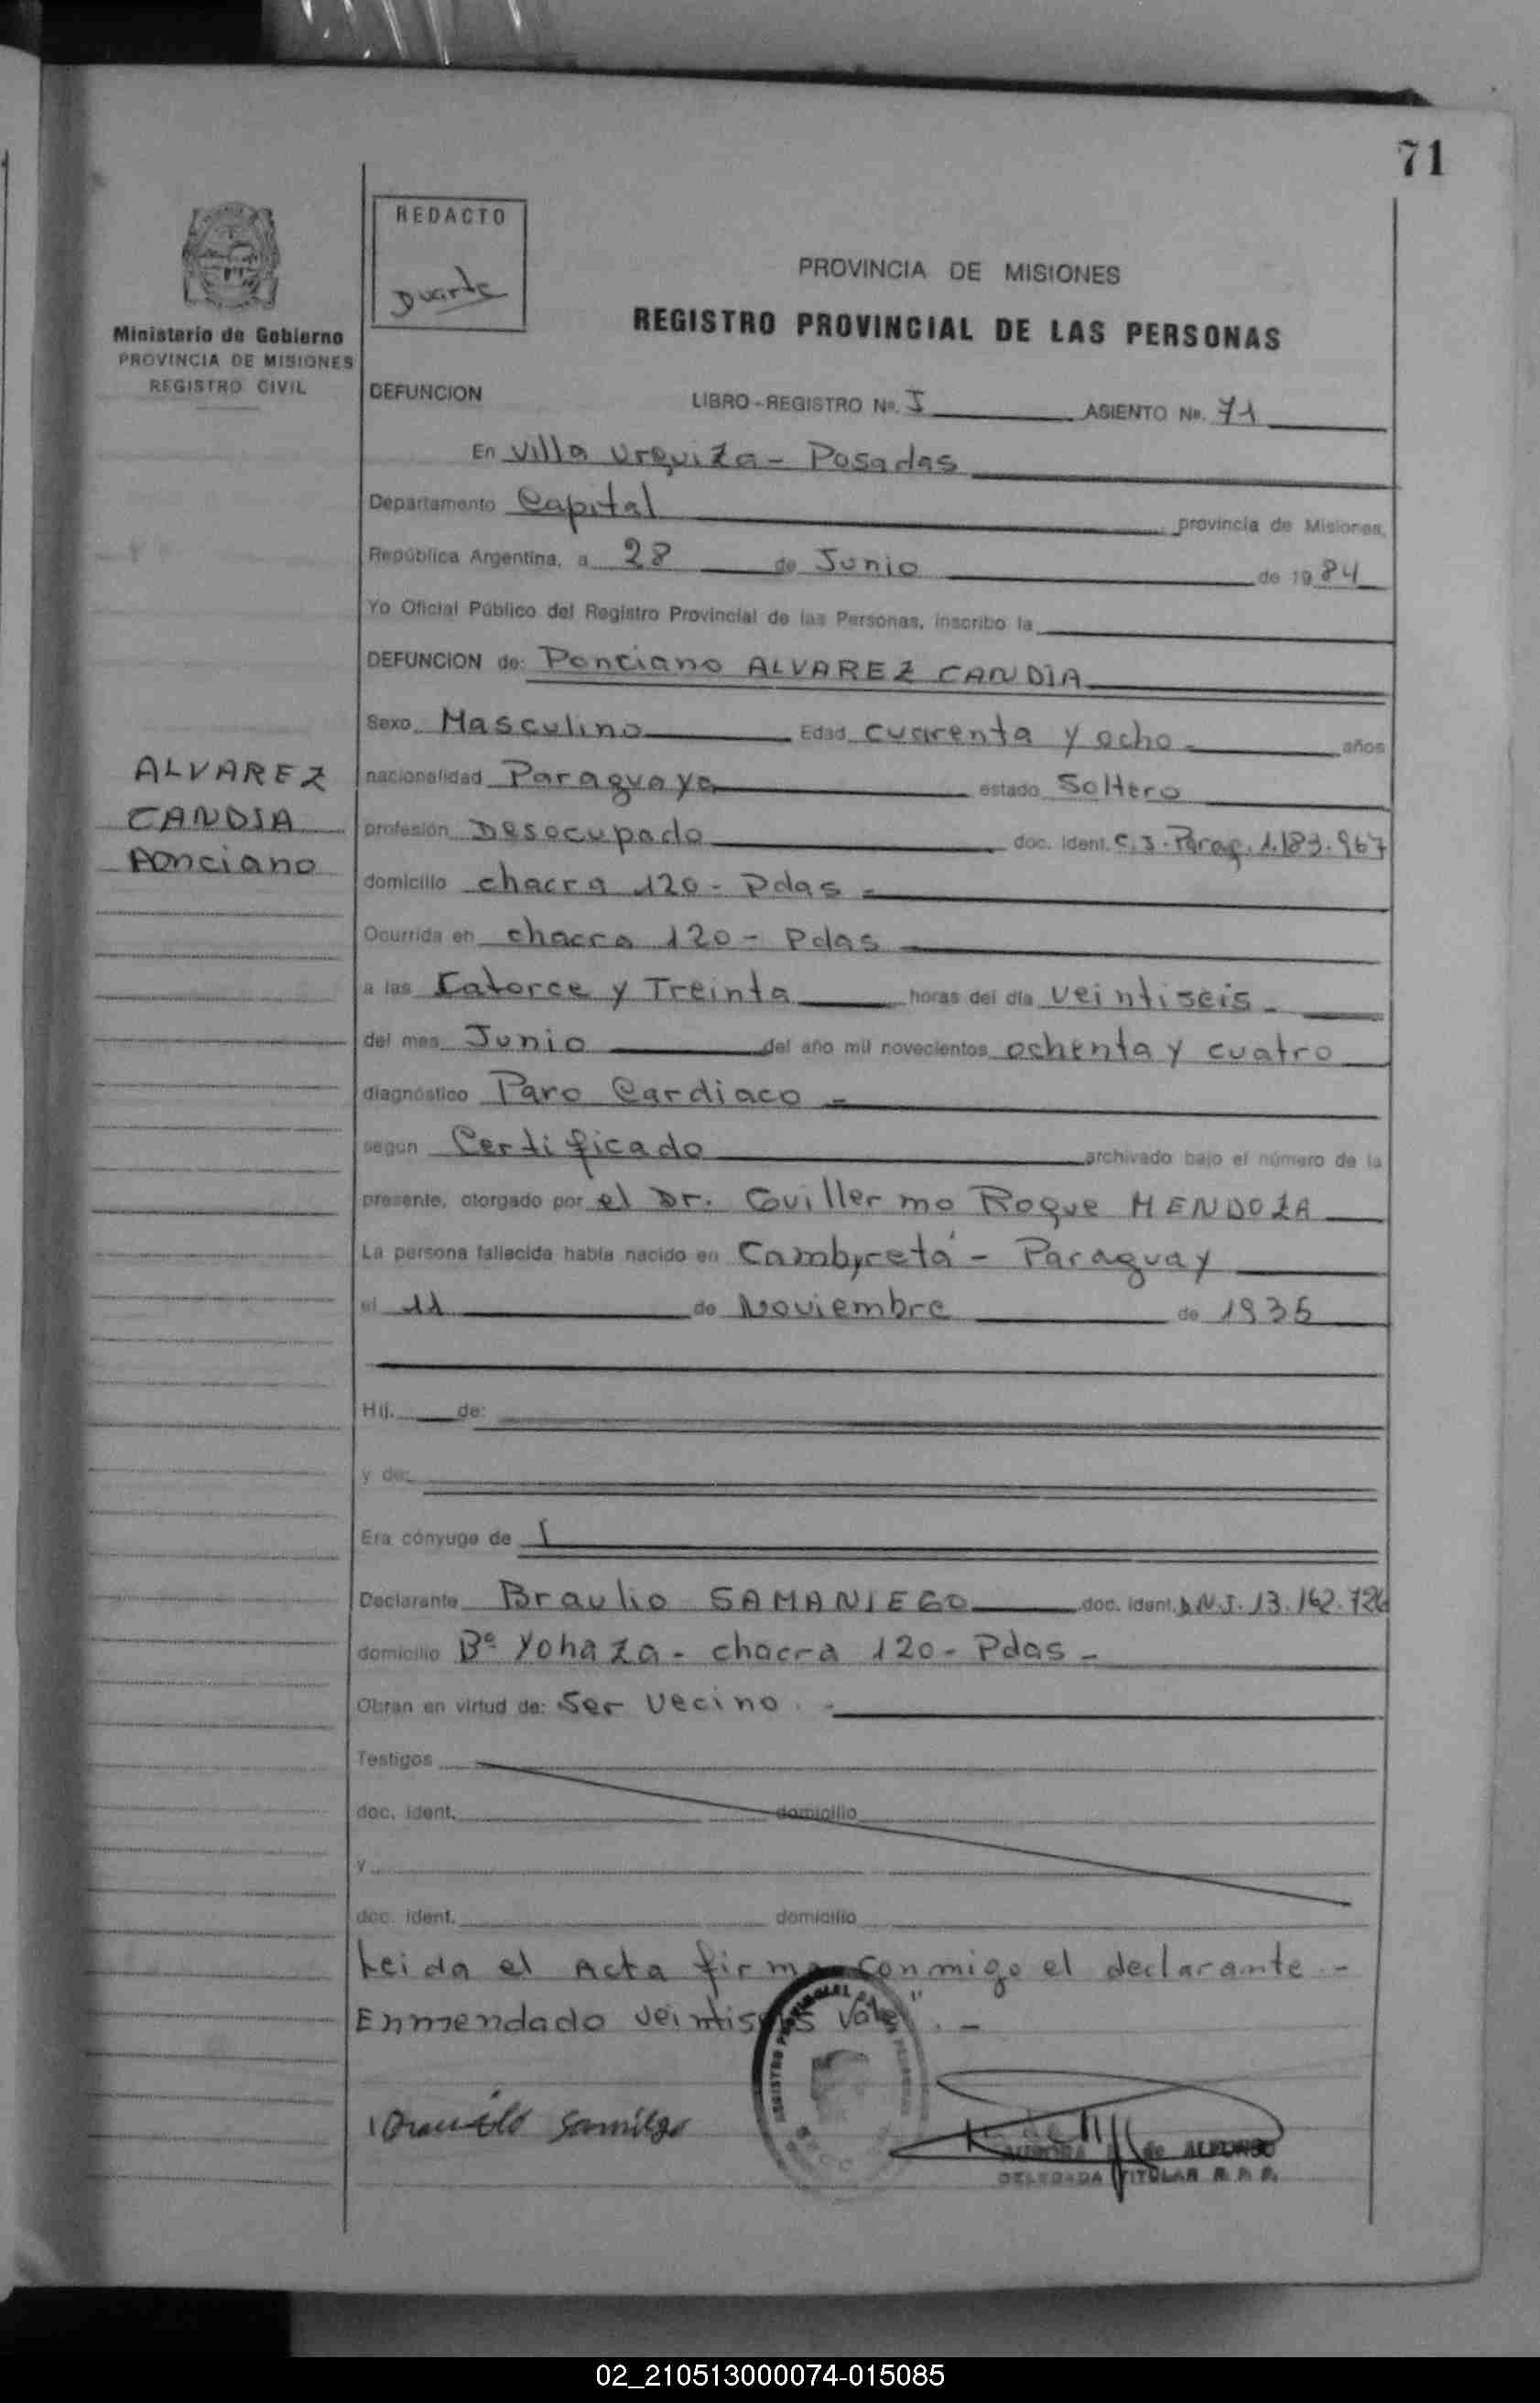 71
REDACTO
Duarte
PROVINCIA DE MISIONES
REGISTRO PROVINCIAL DE LAS PERSONAS
Ministerio de Gobierno
PROVINCIA DE MISIONES
REGISTRO CIVIL
DEFUNCION LIBRO-REGISTRO Nº. I ASIENTO Nº. 71
En Villa Urquiza - Posadas
Departamento Capital provincia de Misiones,
República Argentina, a 28 de Junio de 1984
Yo Oficial Público del Registro Provincial de las Personas, inscribo la
DEFUNCION de: Ponciano ALVAREZ CANDIA
Sexo Masculino Edad cuarenta y ocho años
ALVAREZ
CANDIA
Ponciano
nacionalidad Paraguaya estado Soltero
profesión Desocupado doc. ident. C.I. Parag. 1.183.967
domicilio chacra 120 - Pdas -
Ocurrida en chacra 120 - Pdas
a las Catorce y Treinta horas del día veintiseis -
del mes Junio del año mil novecientos ochenta y cuatro
diagnóstico Paro Cardiaco -
segun Certificado archivado bajo el número de la
presente, otorgado por el Dr. Guillermo Roque MENDOZA
La persona fallecida había nacido en Cambyretá - Paraguay
el 11 de Noviembre de 1935
Hij. de:
y de:
Era cónyuge de
Declarante Braulio SAMANIEGO doc. ident. D.N.I. 13.162.726
domicilio Bº Yohaza - chacra 120 - Pdas -
Obran en virtud de: Ser vecino. -
Testigos
doc. ident. domicilio
y
doc. ident. domicilio
Leida el Acta firma conmigo el declarante. -
Enmendado veintiseis Vale". -
de ALFONSO
DELEGADA TITULAR R. P. P.
02_210513000074-015085